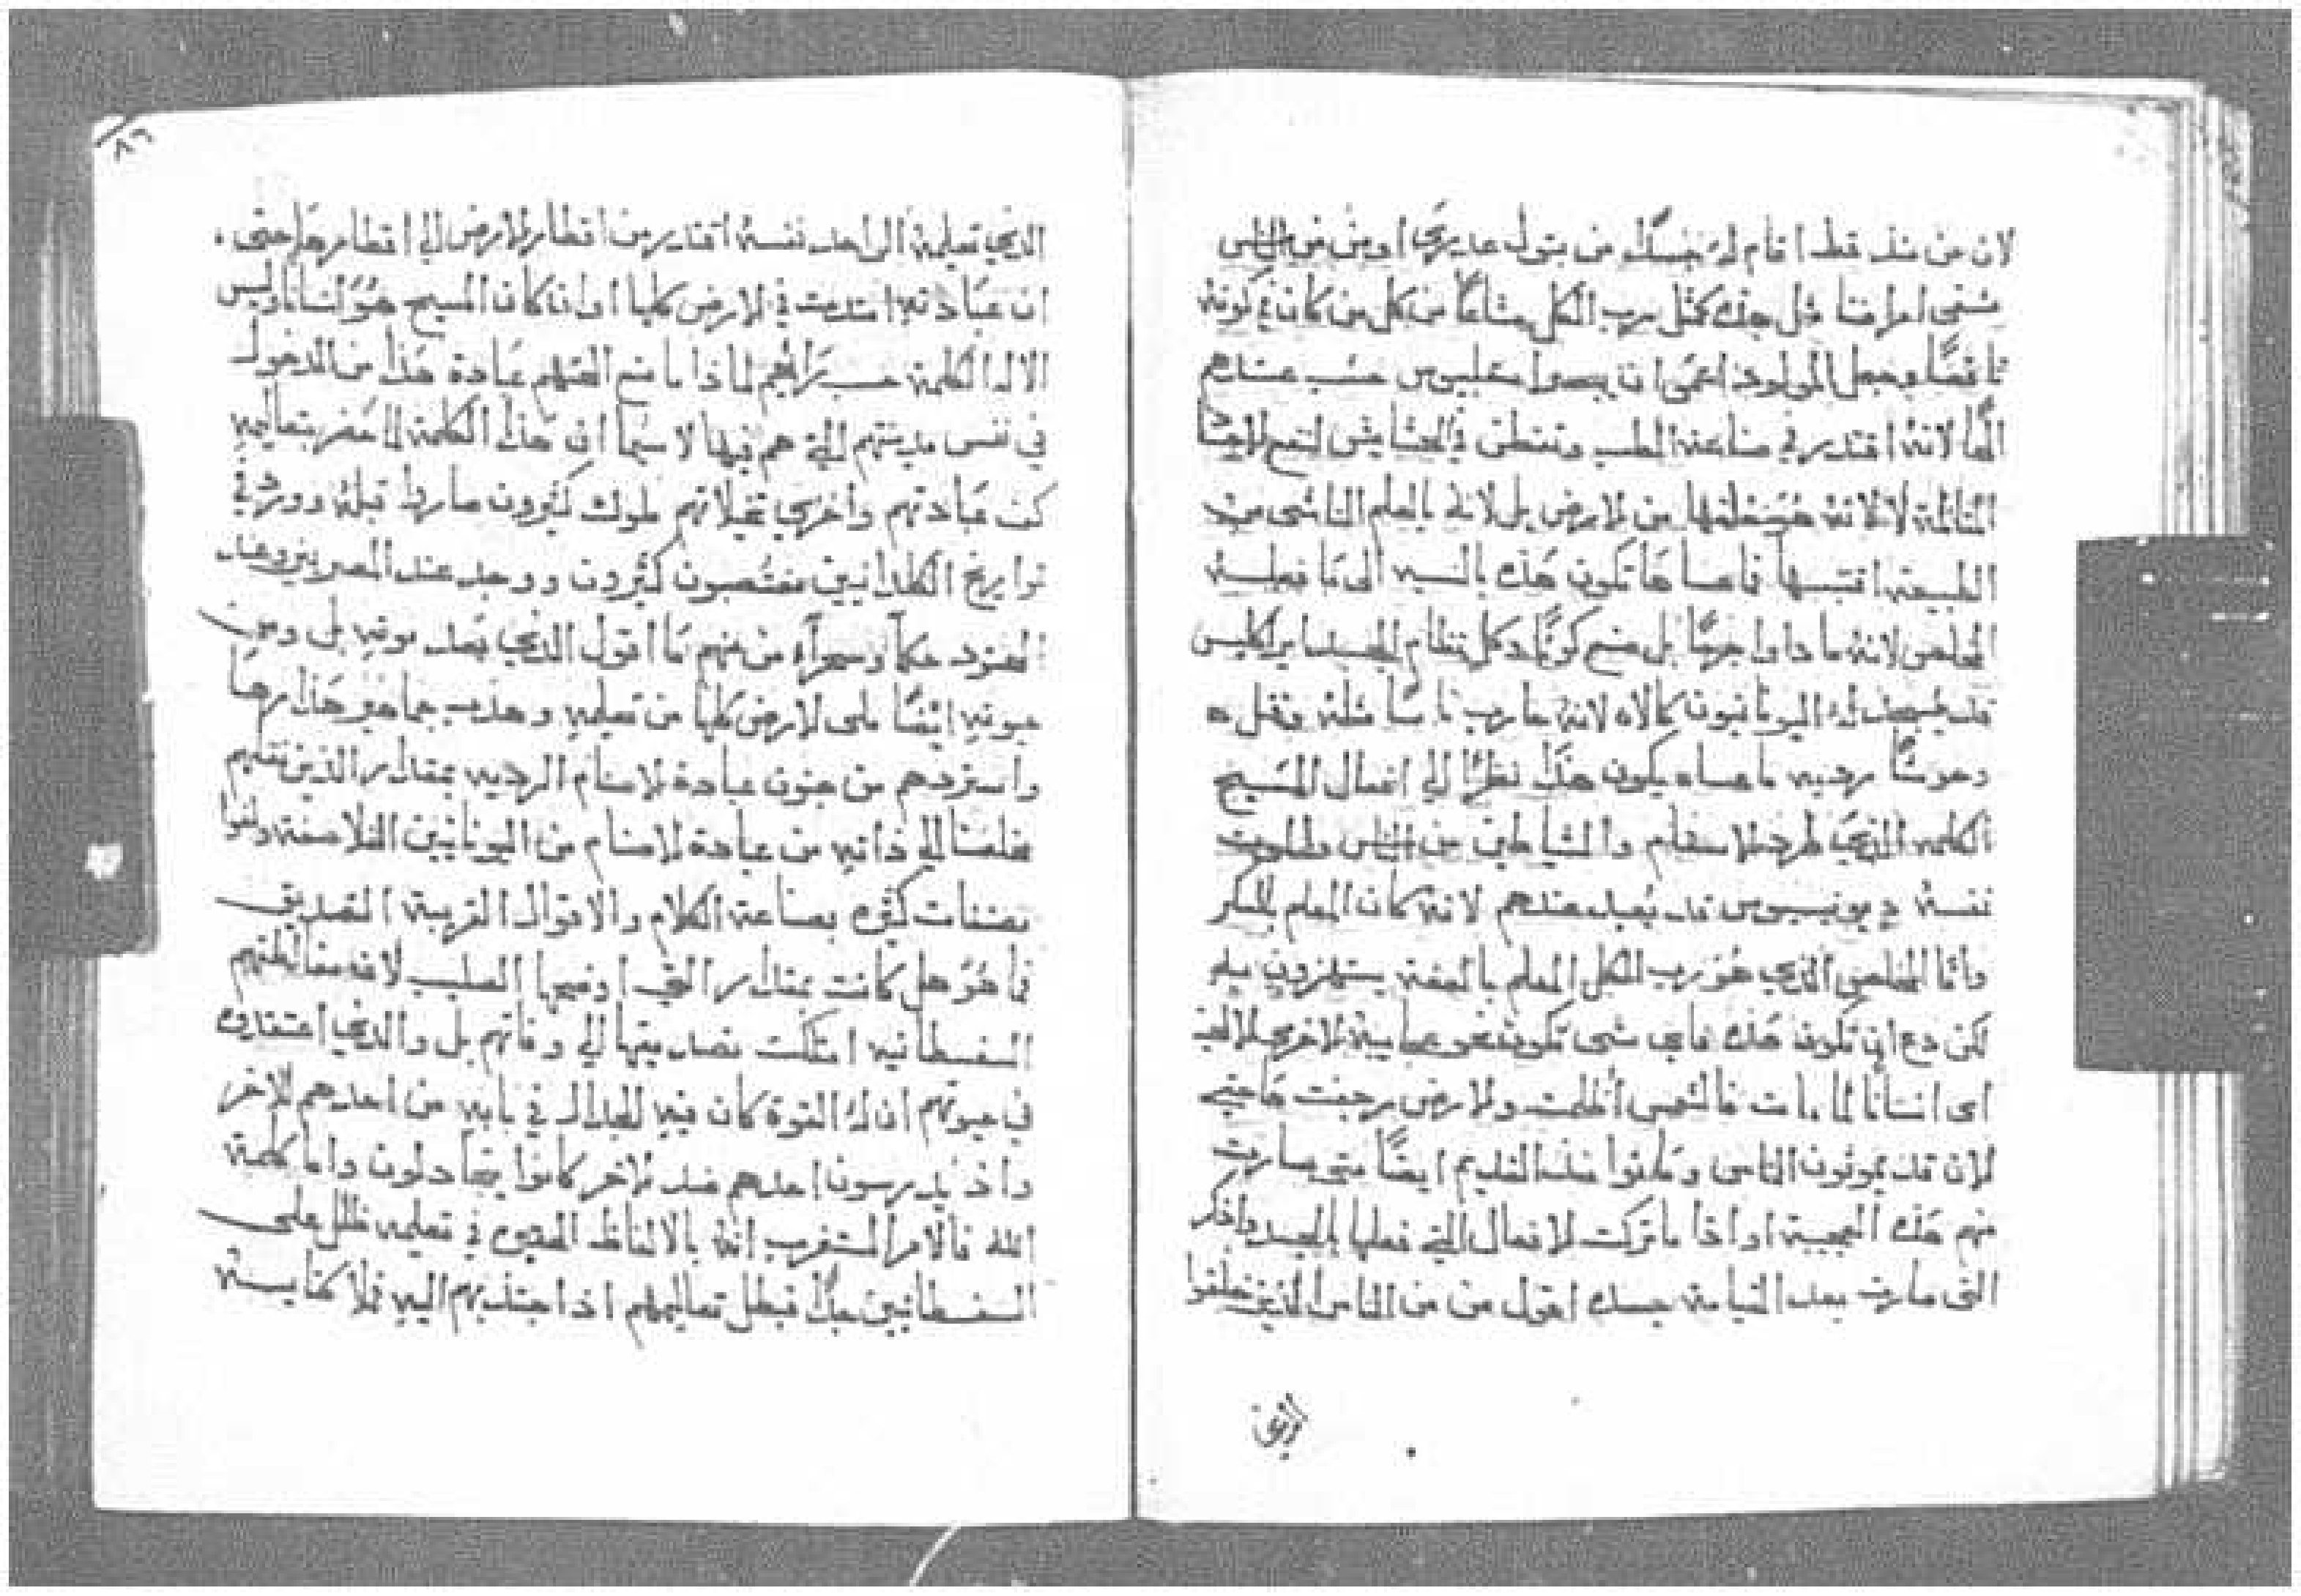 لان من منذ قط اقام له جسدًا من بتول عذرى او من من الناس
شفى امراضنا مثل هذه كمثل رب الكل مشاعًا من كل من كان في كونه
ناقصًا وجعل المولود اعمى ان يبصر اسقلبيوس حسب عندهم
الهًا لانه اقتدر في صناعة الطب و في الحشايش لنفع الاجسا
التالمة لا لانه هو خلقها من الارض بل لانه بالعلم الناشى من
الطبيعة اقتبسها فما عساها تكون هذه بالنسبه الى ما فعله
المخلص لانه ما داوا جرحًا بل صنع كونًا وكل نظام الجسد ايراكليس
قد عند له اليونانيون كالاه لانه حارب ناسًا مثله وقتل
وحوشًا رديه ما عساه يكون هذا نظرًا الى افعال المسيح
الكلمه الذي طرد الاسقام والشياطين من الناس والموت
نفسه ديونيسيوس قد يُعبد عندهم لانه كان المعلم بالسكر
واما المخلص الذي هو رب الكل المعلم بالعفة يستهزون به
لكن دع ان تكون هذه فاي شى تكون نحو عجايبه الاخرى
اى انسانًا لما مات فالشمس أظلمت والارض رجفت ها حتى
الان قد يموتون الناس وماتوا منذ القديم ايضًا متى صارت
منهم هذه العجيبة او اذا ما تركت الافعال التي فعلها بالجسد واذكر
التى صارت بعد القيامة جسده اقول من من الناس الذين خلفوا
الذي تعليمه الواحد نفسه اقتدر من اقطار الارض الى اقطارها حتى
ان عبادته امتدت في الارض كلها او ان كان المسيح هو انسانا وليس
الاله الكلمة حسب رايهم لماذا ما منع الهتهم عبادة هذا من الدخول
في نفس مدينتهم التي هم فيها لا سيما ان هذا الكلمة لما حضر بتعاليمه
كف عبادتهم واخزى تخيلاتهم ملوك كثيرون صاروا قبله وورد في
تواريخ الكلدانيين مغتصبون كثيرون ووجد عند المصريين وعند
الهنود حكمآ وسحرآه من منهم ما اقول الذي بعد موته بل ومن
حيوته ايضًا ملى الارض كلها من تعليمه وجذب جماهير هذا
واستردهم من جنون عبادة الاصنام الرديه بمقدار الذين نقلهم
مخلصنا الى ذاته من عبادة الاصنام من اليونانيين الفلاسفة والفوا
مصنفات كثيره بصناعة الكلام والاقوال القريبة التصديق
فما هو هل كانت بمقدار التي اوضحها الصليب لانه مغالطتهم
السفسطانيه امتلكت تصديقها الى وفاتهم بل والذي اعتقدوه
في حيوتهم ان له القوة كان فيه الجدال في بابه من احدهم للاخر
واذ يدرسون احدهم ضد الاخر كانوا يتجادلون واما كلمة
الله فالامر المستغرب انه بالالفاظ الحقيره في تعليمه ظلل على
السفسطانيين جدًا فبطل تعاليمهم اذ اجتذبهم اليه فملا كنايسة